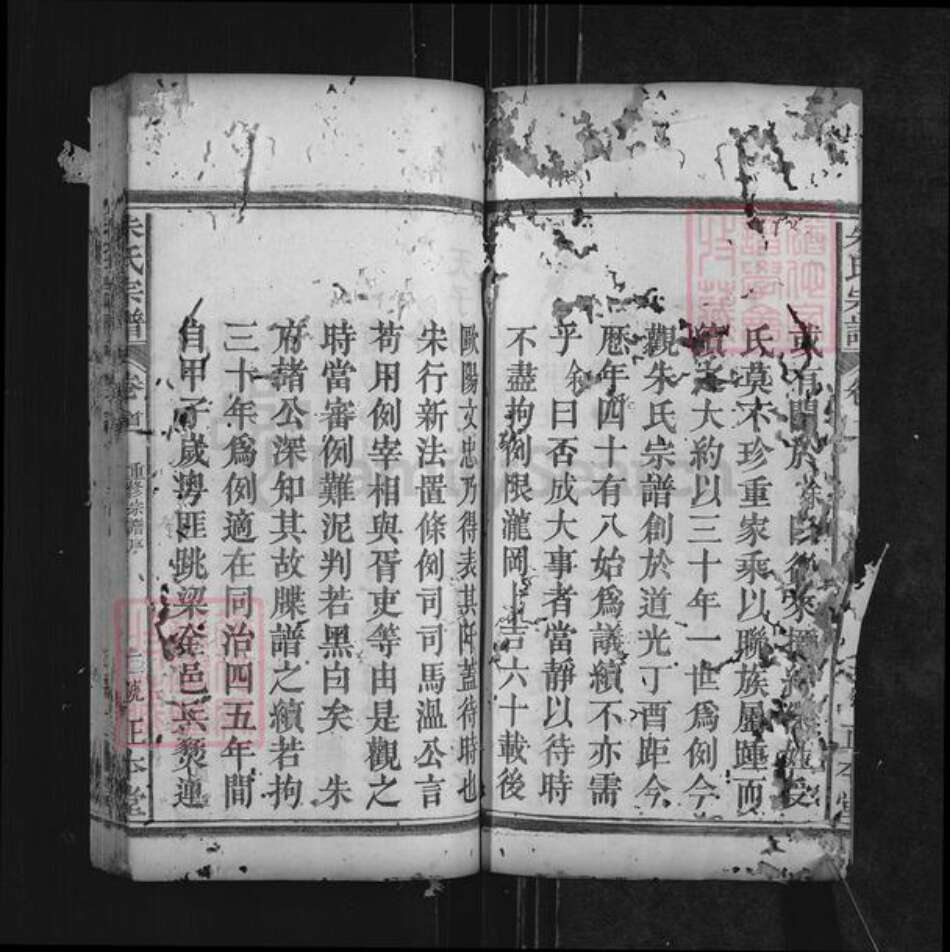 或有問於余曰從來
氏莫不珍重家乘以聯族屬踵而
續之大約以三十年一世爲例今
觀朱氏宗譜創於道光丁酉距今
歷年四十有八始爲議續不亦需
乎余曰否成大事者當靜以待時
不盡拘例限瀧岡卜吉六十載後
歐陽文忠乃得表其阡蓋待時也
宋行新法置條例司司馬溫公言
苟用例宰相與胥吏等由是觀之
時當審例難泥判若黑白矣 朱
府諸公深知其故牒譜之續若拘
三十年爲例適在同治四五年間
自甲子歲粵匪跳梁金邑兵燹連
朱氏宗譜 卷首 重修宗譜序 正本堂